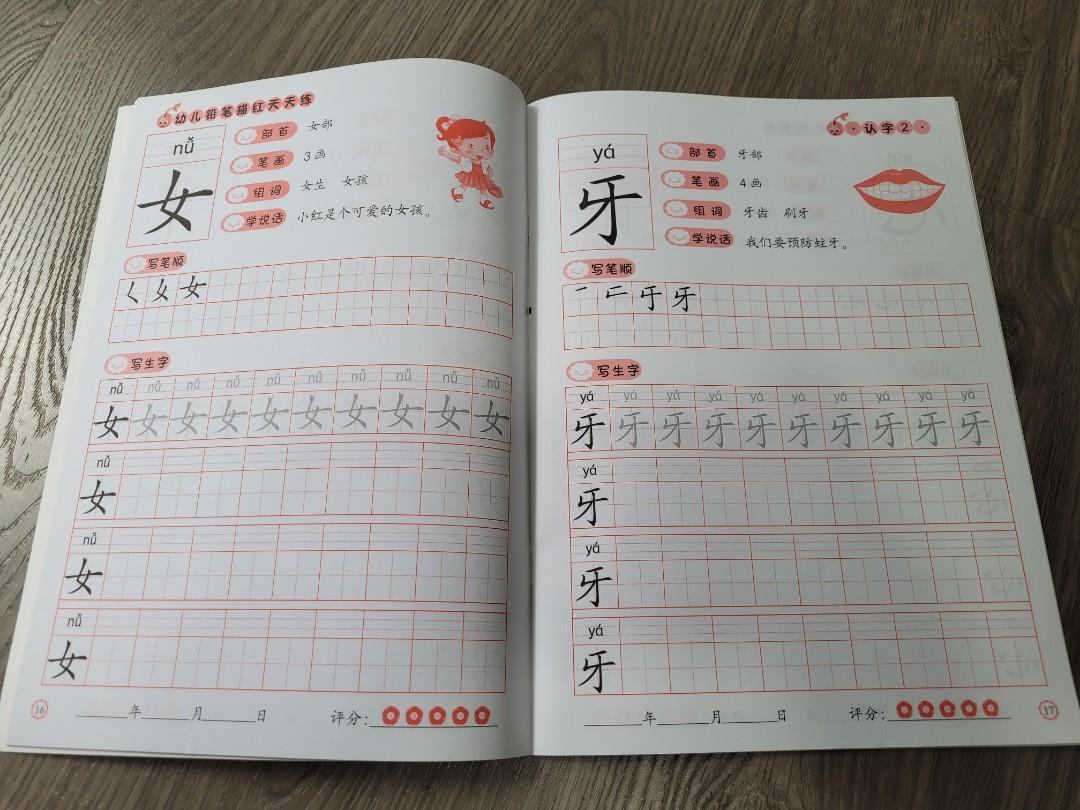 幼儿铅笔描红天天练
nǚ
女
部首 女部
笔画 3画
组词 女生 女孩
学说话 小红是个可爱的女孩。
写笔顺
く 夂 女
写生字
nǚ nǚ nǚ nǚ nǚ nǚ nǚ nǚ nǚ nǚ
女 女 女 女 女 女 女 女 女 女
nǚ
女
nǚ
女
nǚ
女
16
年 月 日 评分:
·认字2·
yá
牙
部首 牙部
笔画 4画
组词 牙齿 刷牙
学说话 我们要预防蛀牙。
写笔顺
一 牙
写生字
yá yá yá yá yá yá yá yá yá yá
牙 牙 牙 牙 牙 牙 牙 牙 牙 牙
yá
牙
yá
牙
yá
牙
年 月 日 评分:
17